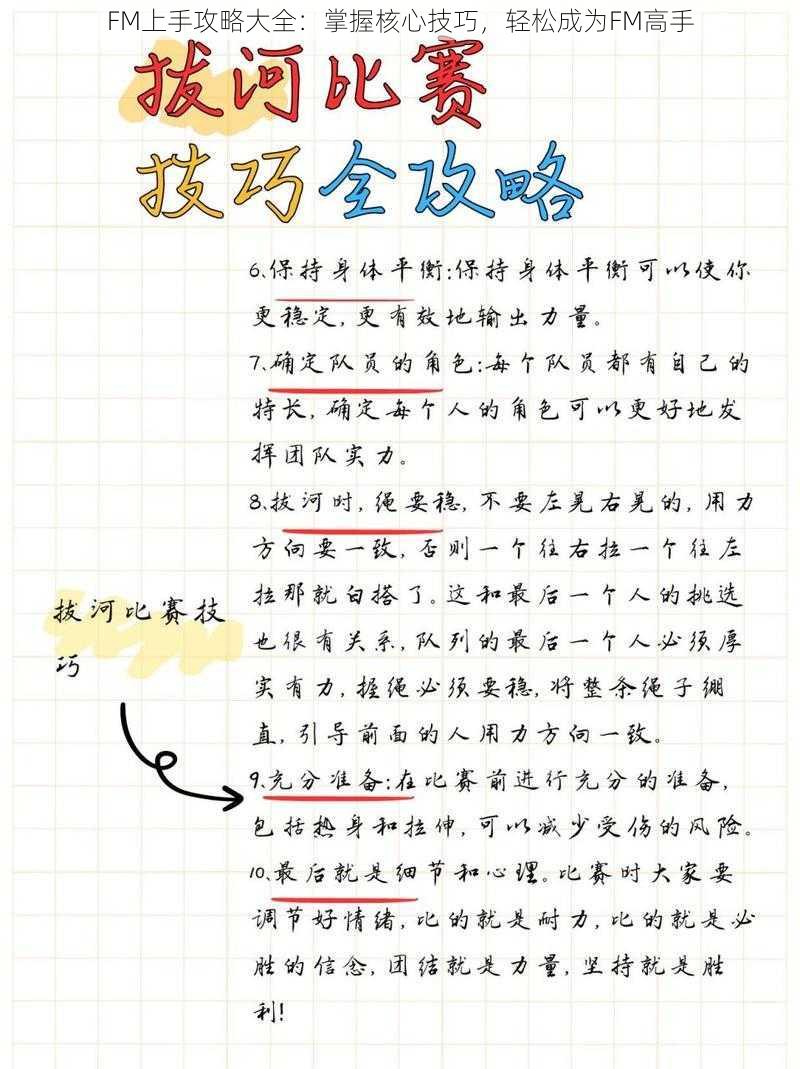 FM上手攻略大全：掌握核心技巧，轻松成为FM高手
拔河比赛
技巧全攻略
6、保持身体平衡:保持身体平衡可以使你
更稳定,更有效地输出力量。
7、确定队员的角色:每个队员都有自己的
特长,确定每个人的角色可以更好地发
挥团队实力。
8、拔河时,绳要稳,不要左晃右晃的,用力
方向要一致,否则一个往右拉一个往左
拉那就白搭了。这和最后一个人的挑选
也很有关系,队列的最后一个人必须厚
实有力,握绳必须要稳,将整条绳子绷
直,引导前面的人用力方向一致。
9、充分准备:在比赛前进行充分的准备,
包括热身和拉伸,可以减少受伤的风险。
10、最后就是细节和心理。比赛时大家要
调节好情绪,比的就是耐力,比的就是必
胜的信念,团结就是力量,坚持就是胜
利!
拔河比赛技
巧